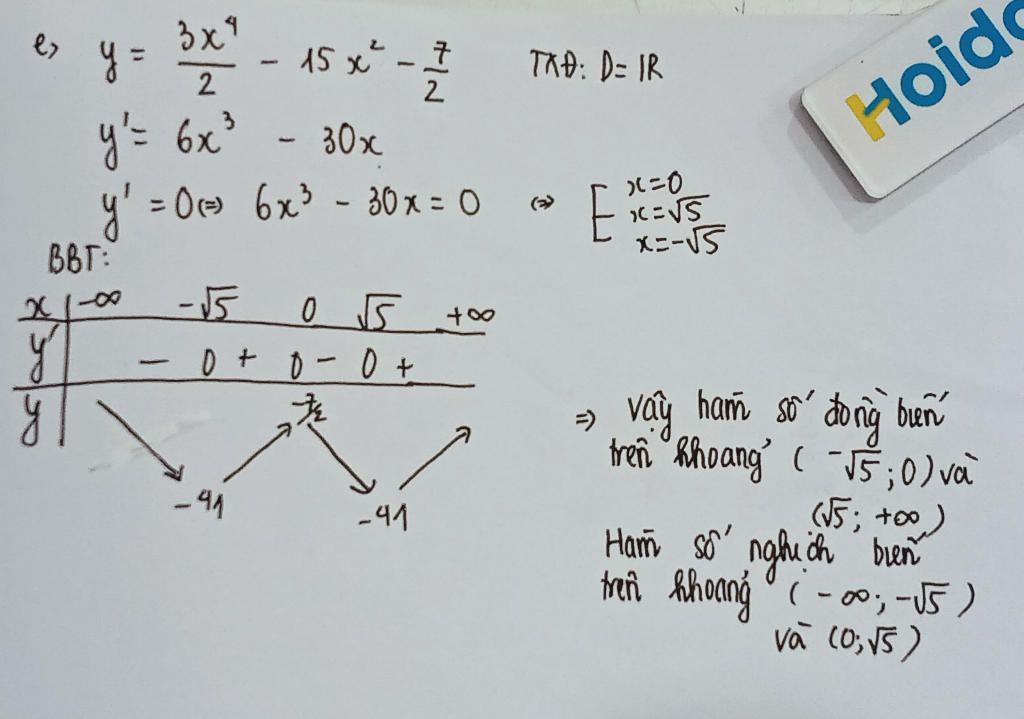 e) y = 3x⁴/2 - 15x² - 7/2 TXĐ: D = ℝ
y' = 6x³ - 30x
y' = 0 ⇔ 6x³ - 30x = 0 ⇔ [ x=0
x=√5
x=-√5
BBT:
x | -∞ -√5 0 √5 +∞
y' | - 0 + 0 - 0 +
y | -7/2
-41 -41
⇒ Vậy hàm số đồng biến
trên khoảng (-√5; 0) và
(√5; +∞)
Hàm số nghịch biến
trên khoảng (-∞; -√5)
và (0; √5)
Hoid